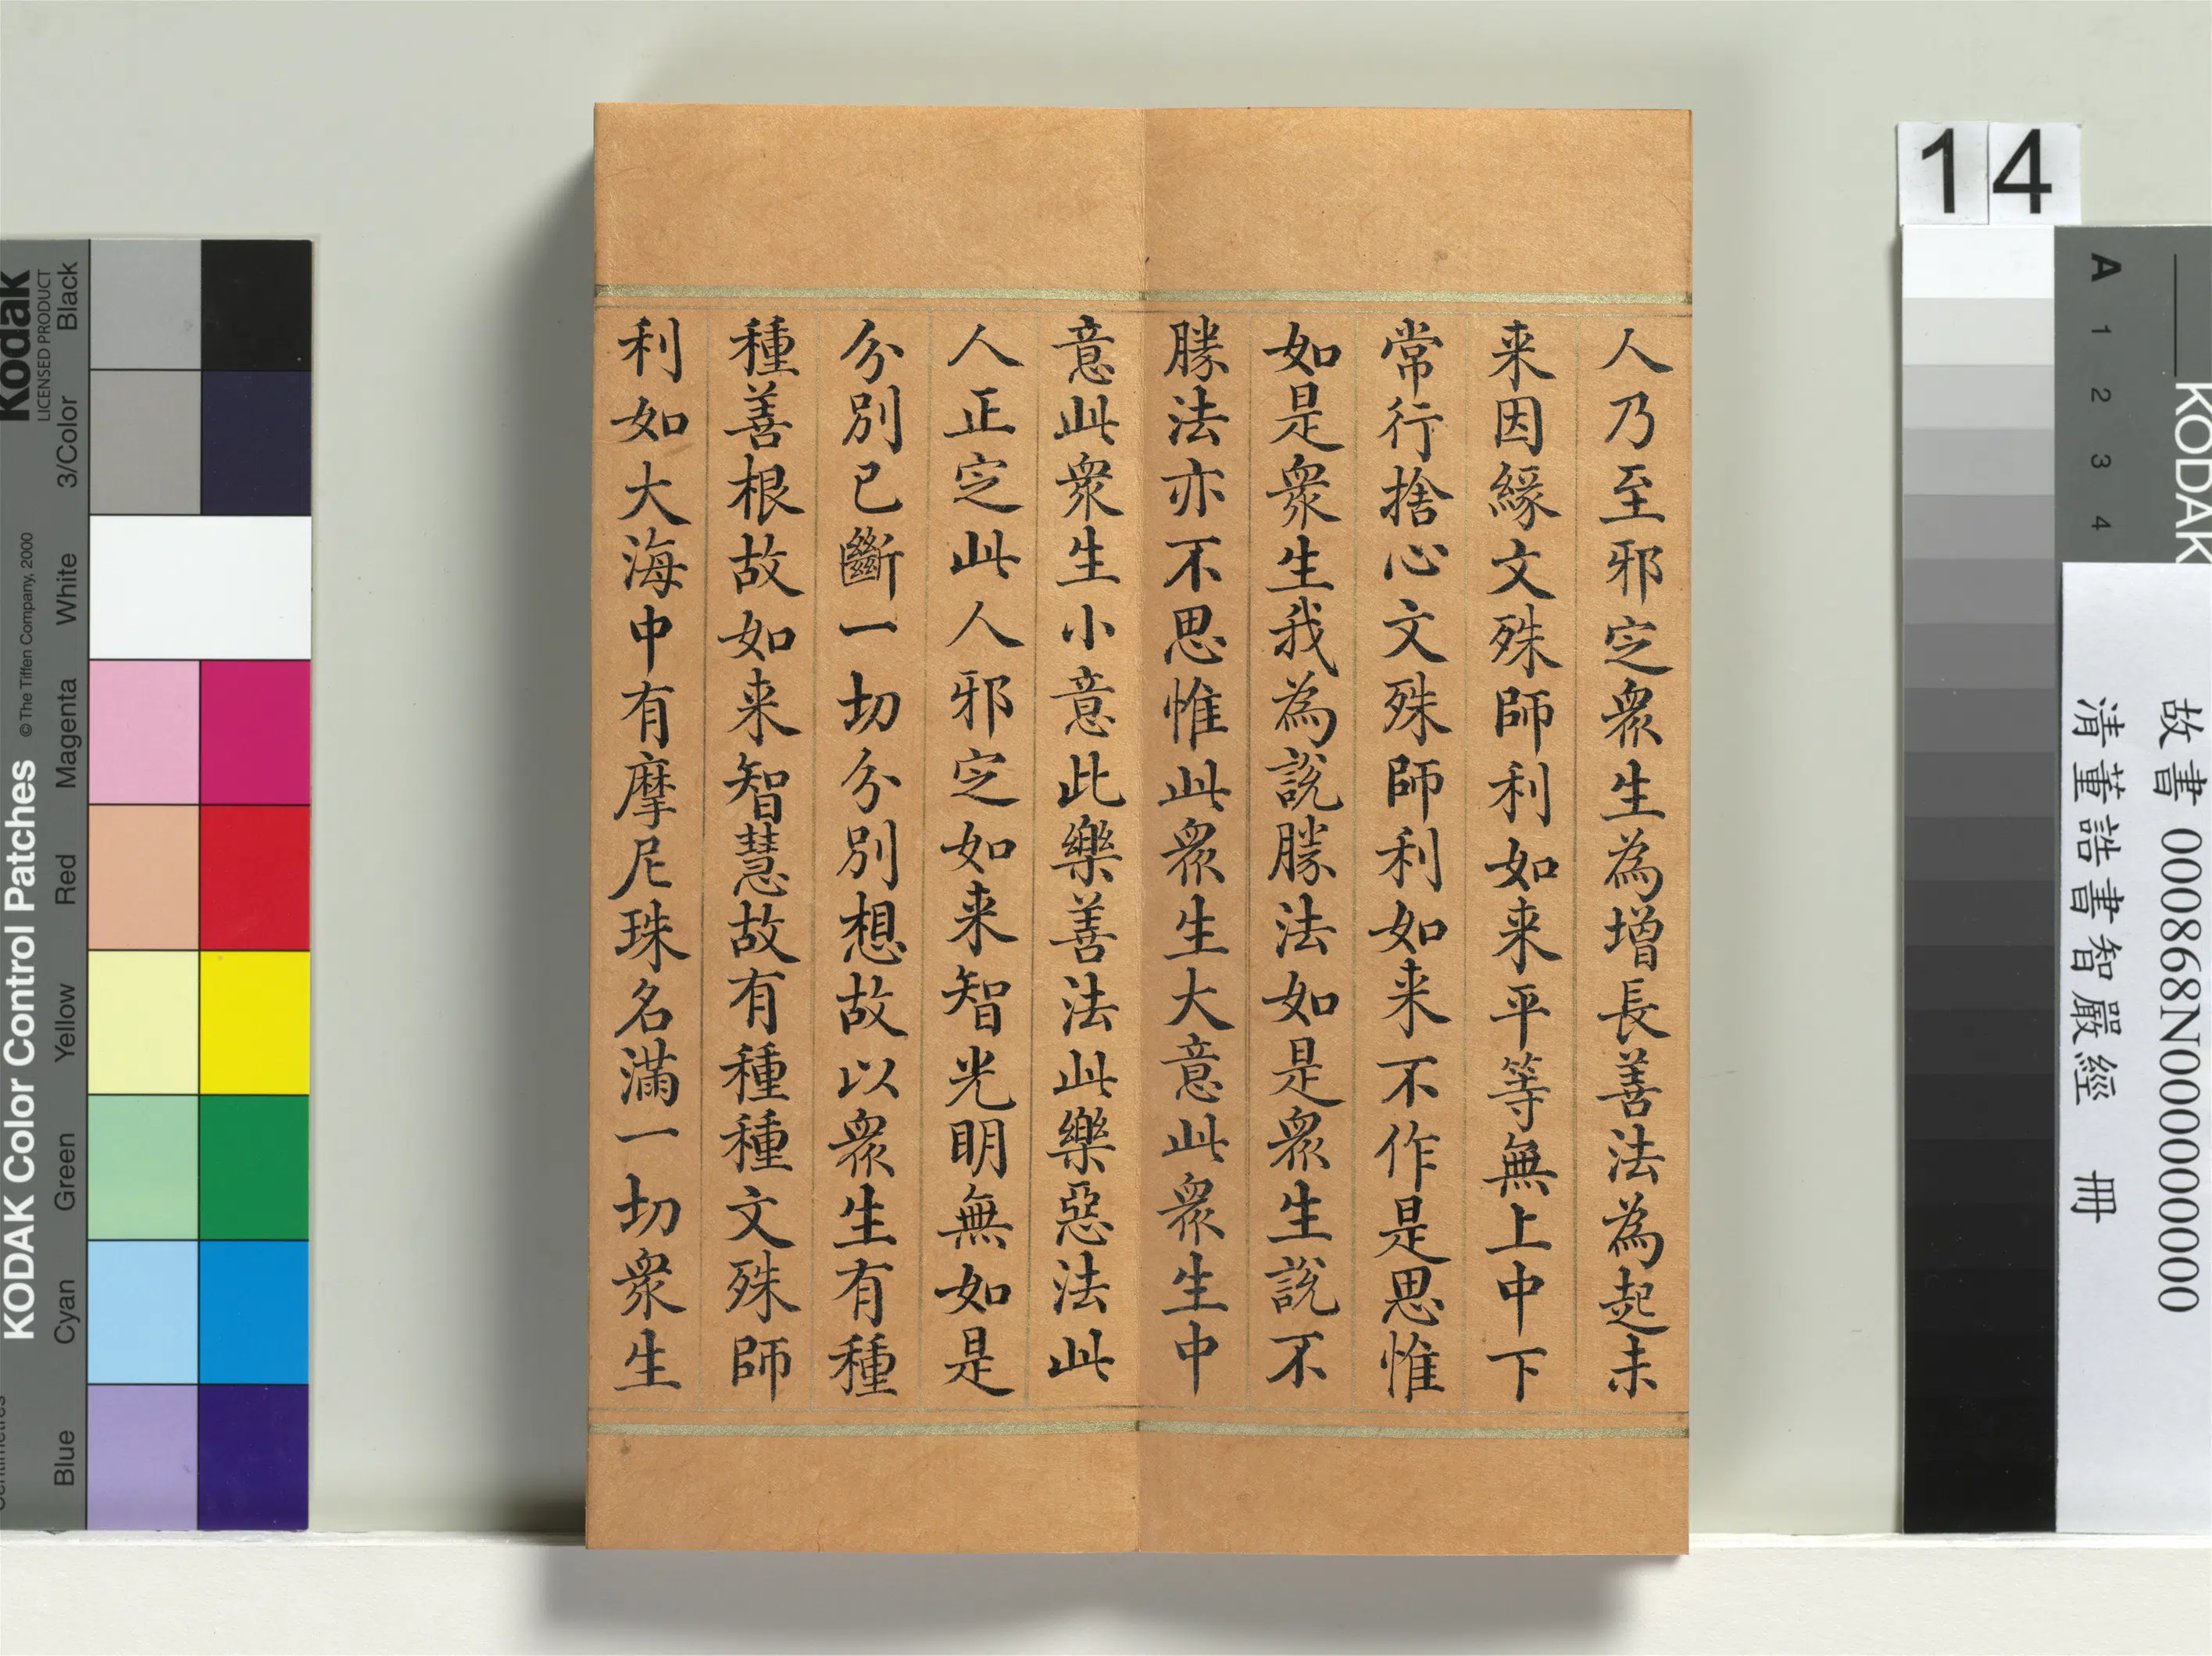 人乃至邪定衆生為增長善法為起未
来因緣文殊師利如来平等無上中下
常行捨心文殊師利如来不作是思惟
如是衆生我為說勝法如是衆生說不
勝法亦不思惟此衆生大意此衆生中
意此衆生小意此樂善法此樂惡法此
人正定此人邪定如来智光明無如是
分別已斷一切分別想故以衆生有種
種善根故如来智慧故有種種文殊師
利如大海中有摩尼珠名滿一切衆生
14
故書 000868N000000000
清董誥書智嚴經 冊
KODAK
A 1 2 3 4
Kodak
LICENSED PRODUCT
KODAK Color Control Patches
©The Tiffen Company, 2000
Blue Cyan Green Yellow Red Magenta White 3/Color Black